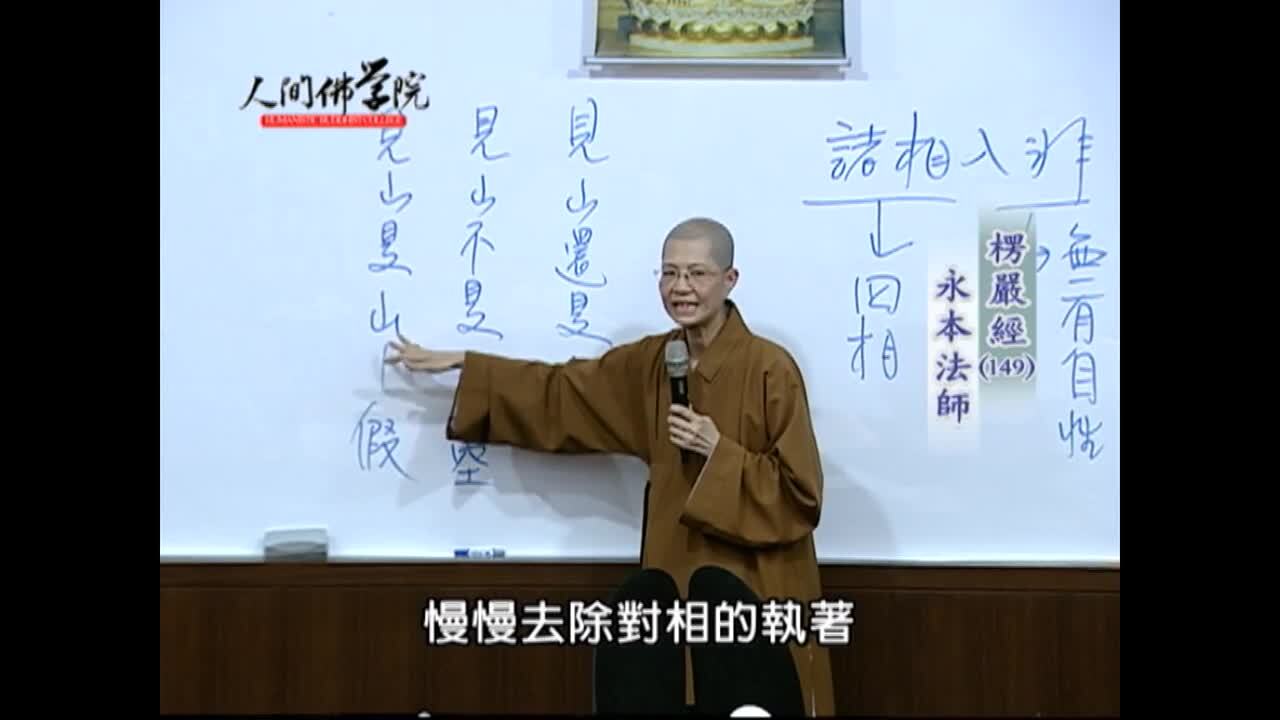 人间佛学院
HUMANISTIC BUDDHIST COLLEGE
見山還是
見山不是
見山是山
空
假
諸相入非
四相
無有自性
楞嚴經
(149)
永本法師
慢慢去除對相的執著